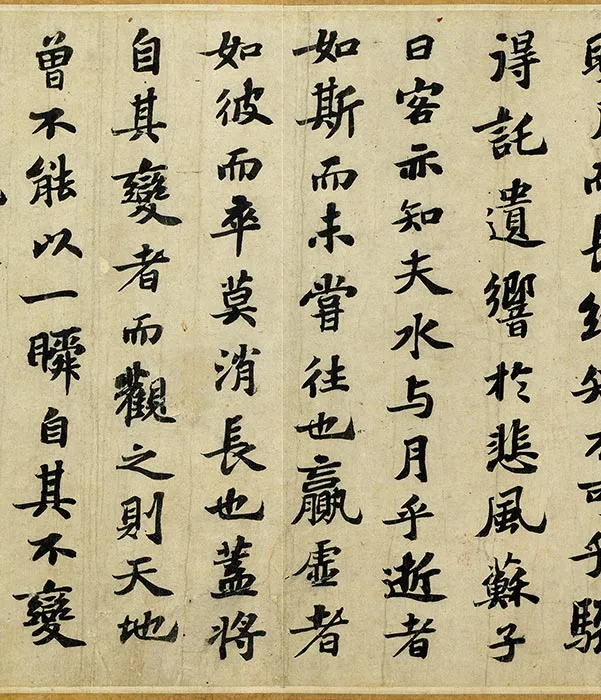 月而長終知不可乎驟
得託遺響於悲風蘇子
曰客亦知夫水与月乎逝者
如斯而未嘗往也贏虛者
如彼而卒莫消長也蓋將
自其變者而觀之則天地
曾不能以一瞬自其不變